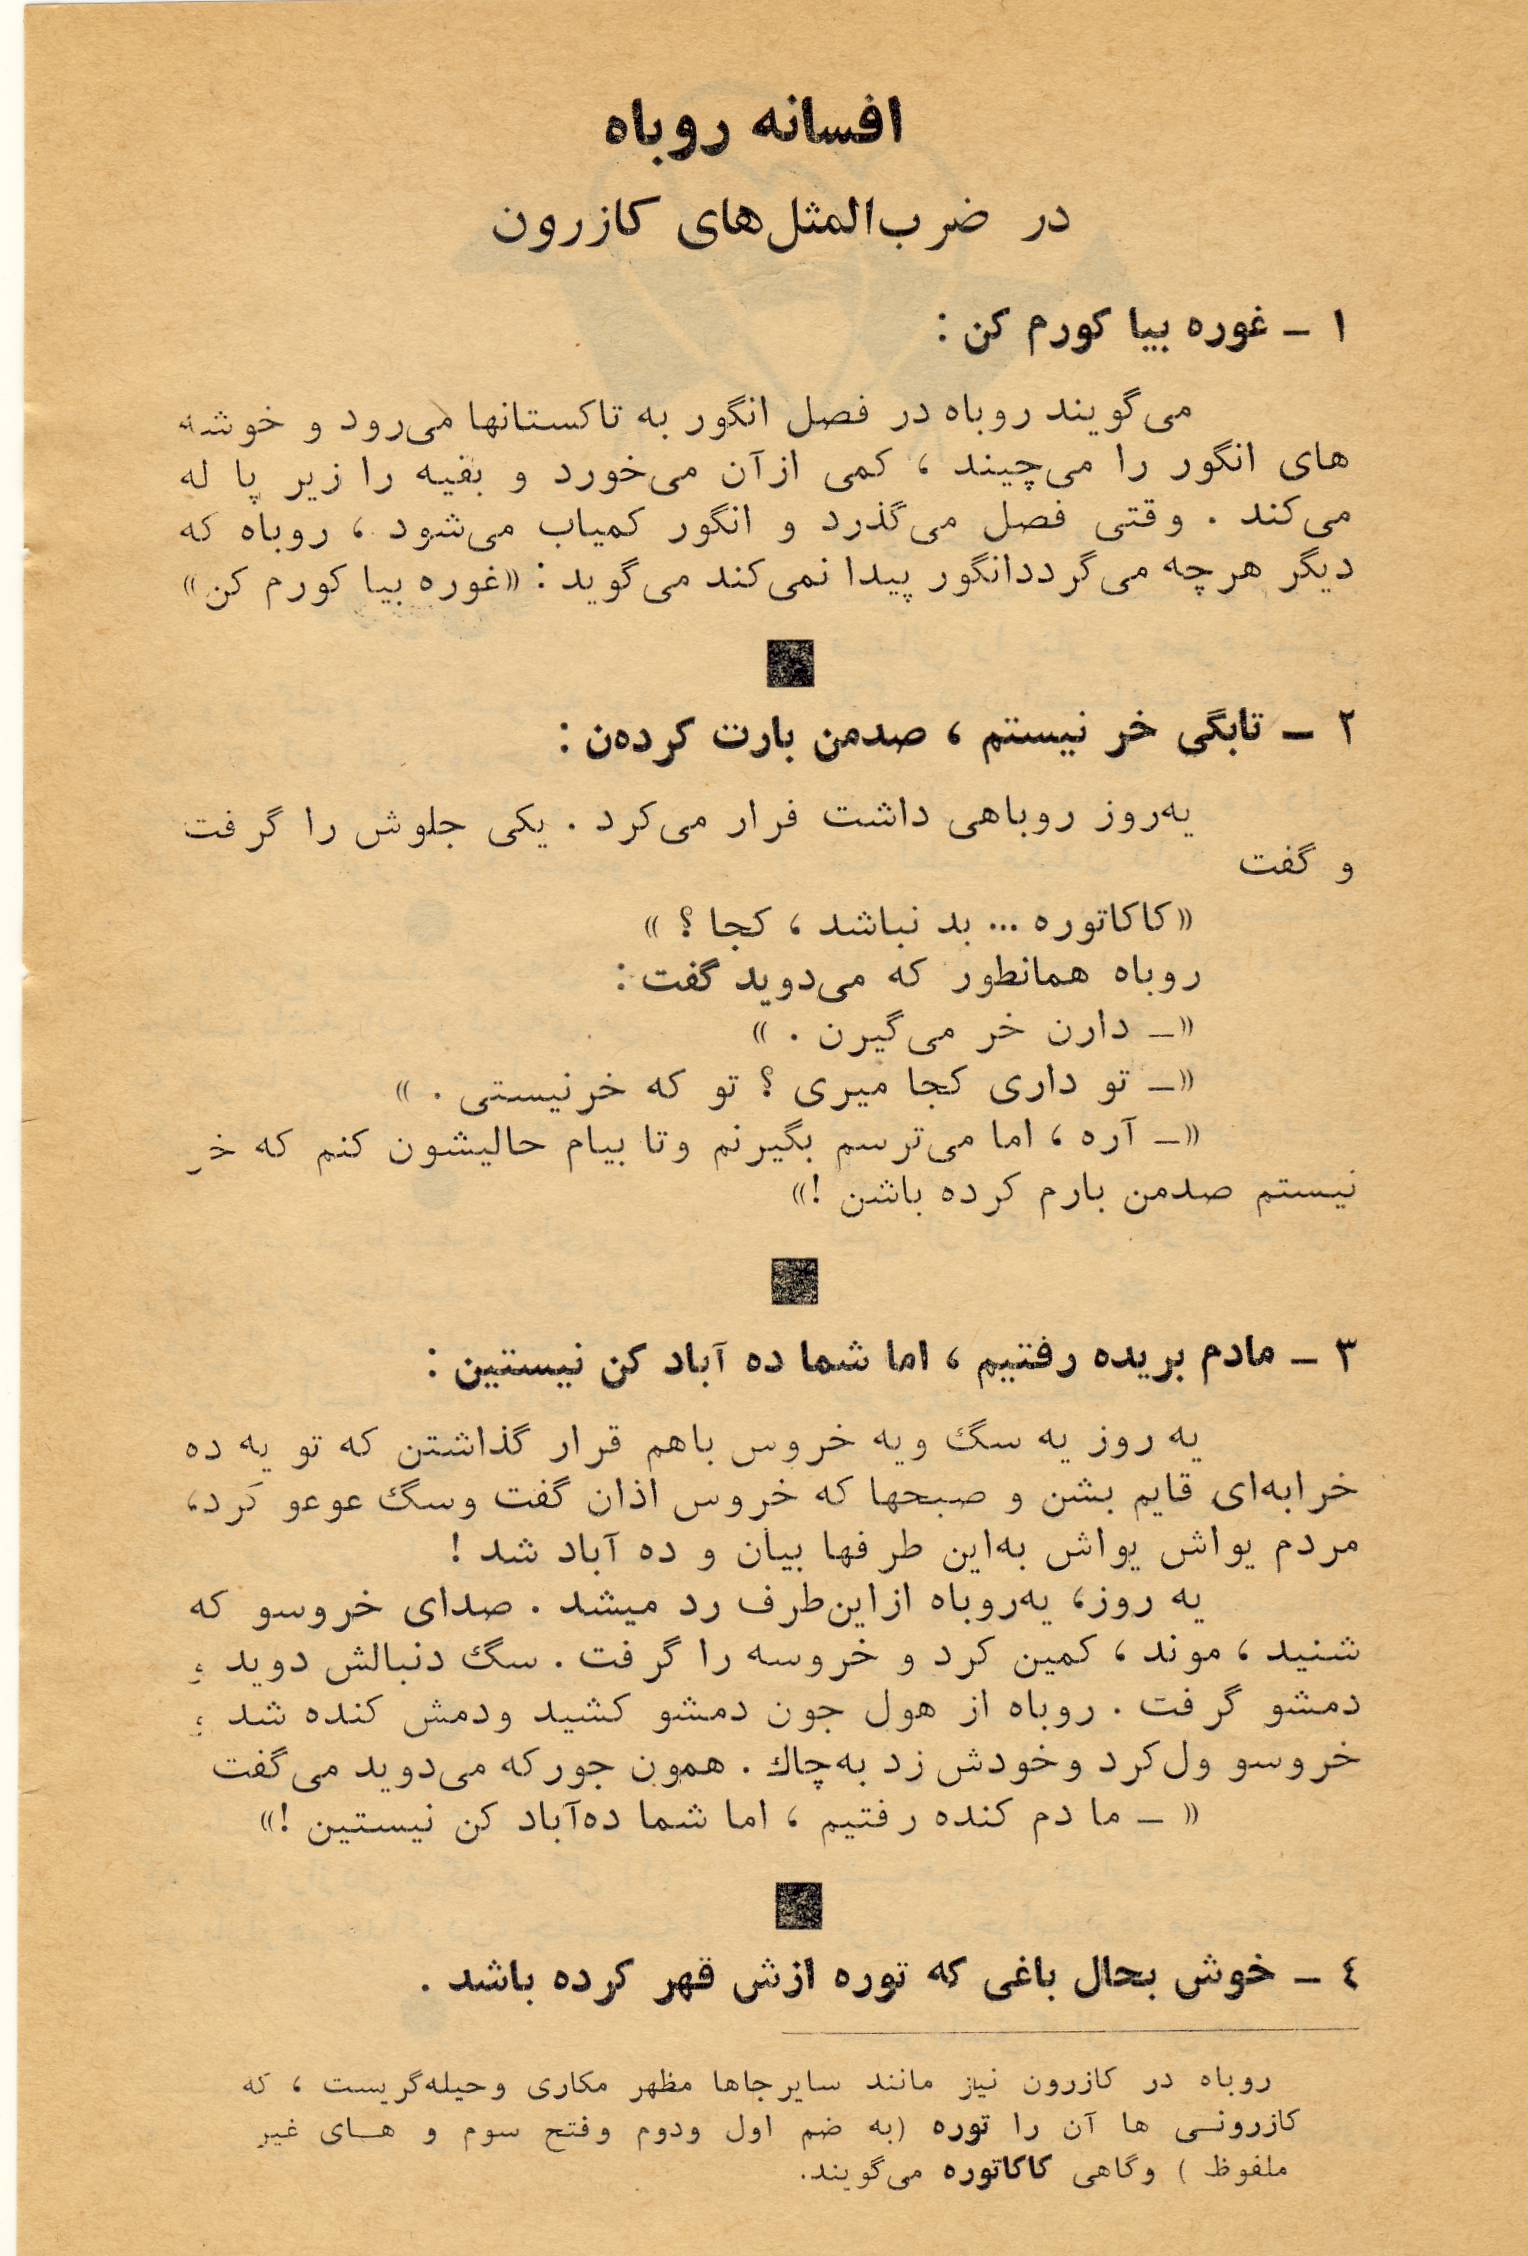 افسانه روباه
در ضرب‌المثل‌های کازرون
۱ – غوره بیا کورم کن :
می‌گویند روباه در فصل انگور به تاکستانها می‌رود و خوشه
های انگور را می‌چیند ، کمی ازآن می‌خورد و بقیه را زیر پا له
می‌کند . وقتی فصل می‌گذرد و انگور کمیاب می‌شود ، روباه که
دیگر هرچه می‌گرددانگور پیدا نمی‌کند می‌گوید : «غوره بیا کورم کن»
۲ – تابگی خر نیستم ، صدمن بارت کرده‌ن :
یه‌روز روباهی داشت فرار می‌کرد . یکی جلوش را گرفت
و گفت
«کاکاتوره ... بد نباشد ، کجا ؟ »
روباه همانطور که می‌دوید گفت :
«– دارن خر می‌گیرن . »
«– تو داری کجا میری ؟ تو که خرنیستی . »
«– آره ، اما می‌ترسم بگیرنم وتا بیام حالیشون کنم که خر
نیستم صدمن بارم کرده باشن !»
۳ – مادم بریده رفتیم ، اما شما ده آباد کن نیستین :
یه روز یه سگ ویه خروس باهم قرار گذاشتن که تو یه ده
خرابه‌ای قایم بشن و صبحها که خروس اذان گفت وسگ عوعو کرد،
مردم یواش یواش به‌این طرفها بیان و ده آباد شد !
یه روز، یه‌روباه ازاین‌طرف رد میشد . صدای خروسو که
شنید ، موند ، کمین کرد و خروسه را گرفت . سگ دنبالش دوید ،
دمشو گرفت . روباه از هول جون دمشو کشید ودمش کنده شد ،
خروسو ول‌کرد وخودش زد به‌چاك . همون جورکه می‌دوید می‌گفت
« – ما دم کنده رفتیم ، اما شما ده‌آباد کن نیستین !»
٤ – خوش بحال باغی که توره ازش قهر کرده باشد .
روباه در کازرون نیز مانند سایرجاها مظهر مکاری وحیله‌گریست ، که
کازرونی ها آن را توره (به ضم اول ودوم وفتح سوم و های غیر
ملفوظ ) وگاهی کاکاتوره می‌گویند.